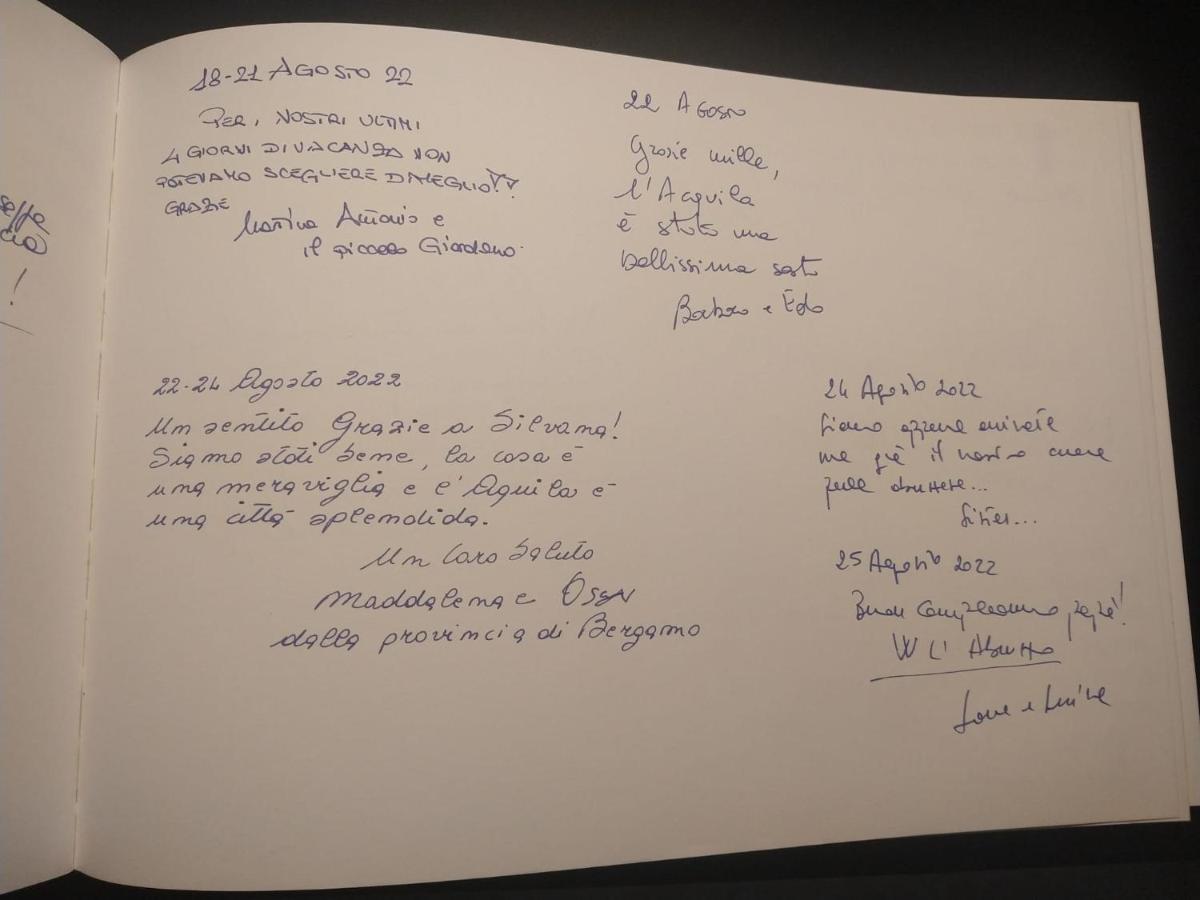 18-21 AGOSTO 22
PER I NOSTRI ULTIMI
4 GIORNI DI VACANZA NON
POTEVAMO SCEGLIERE DI MEGLIO!!
GRAZIE
Martina Antonio e
il piccolo Giordano.
22 Agosto
Grazie mille,
l'Acquila
è stata una
bellissima
Barbara e Edo
22-24 Agosto 2022
Un sentito Grazie a Silvana!
Siamo stati bene, la casa è
una meraviglia e l'Aquila è
una città splendida.
Un caro saluto
Maddalena e
dalla provincia di Bergamo
24 Agosto 2022
Siamo appena arrivate
ma già il nostro cuore
25 Agosto 2022
Buon Compleanno papà!
W L'Abruzzo
e
!